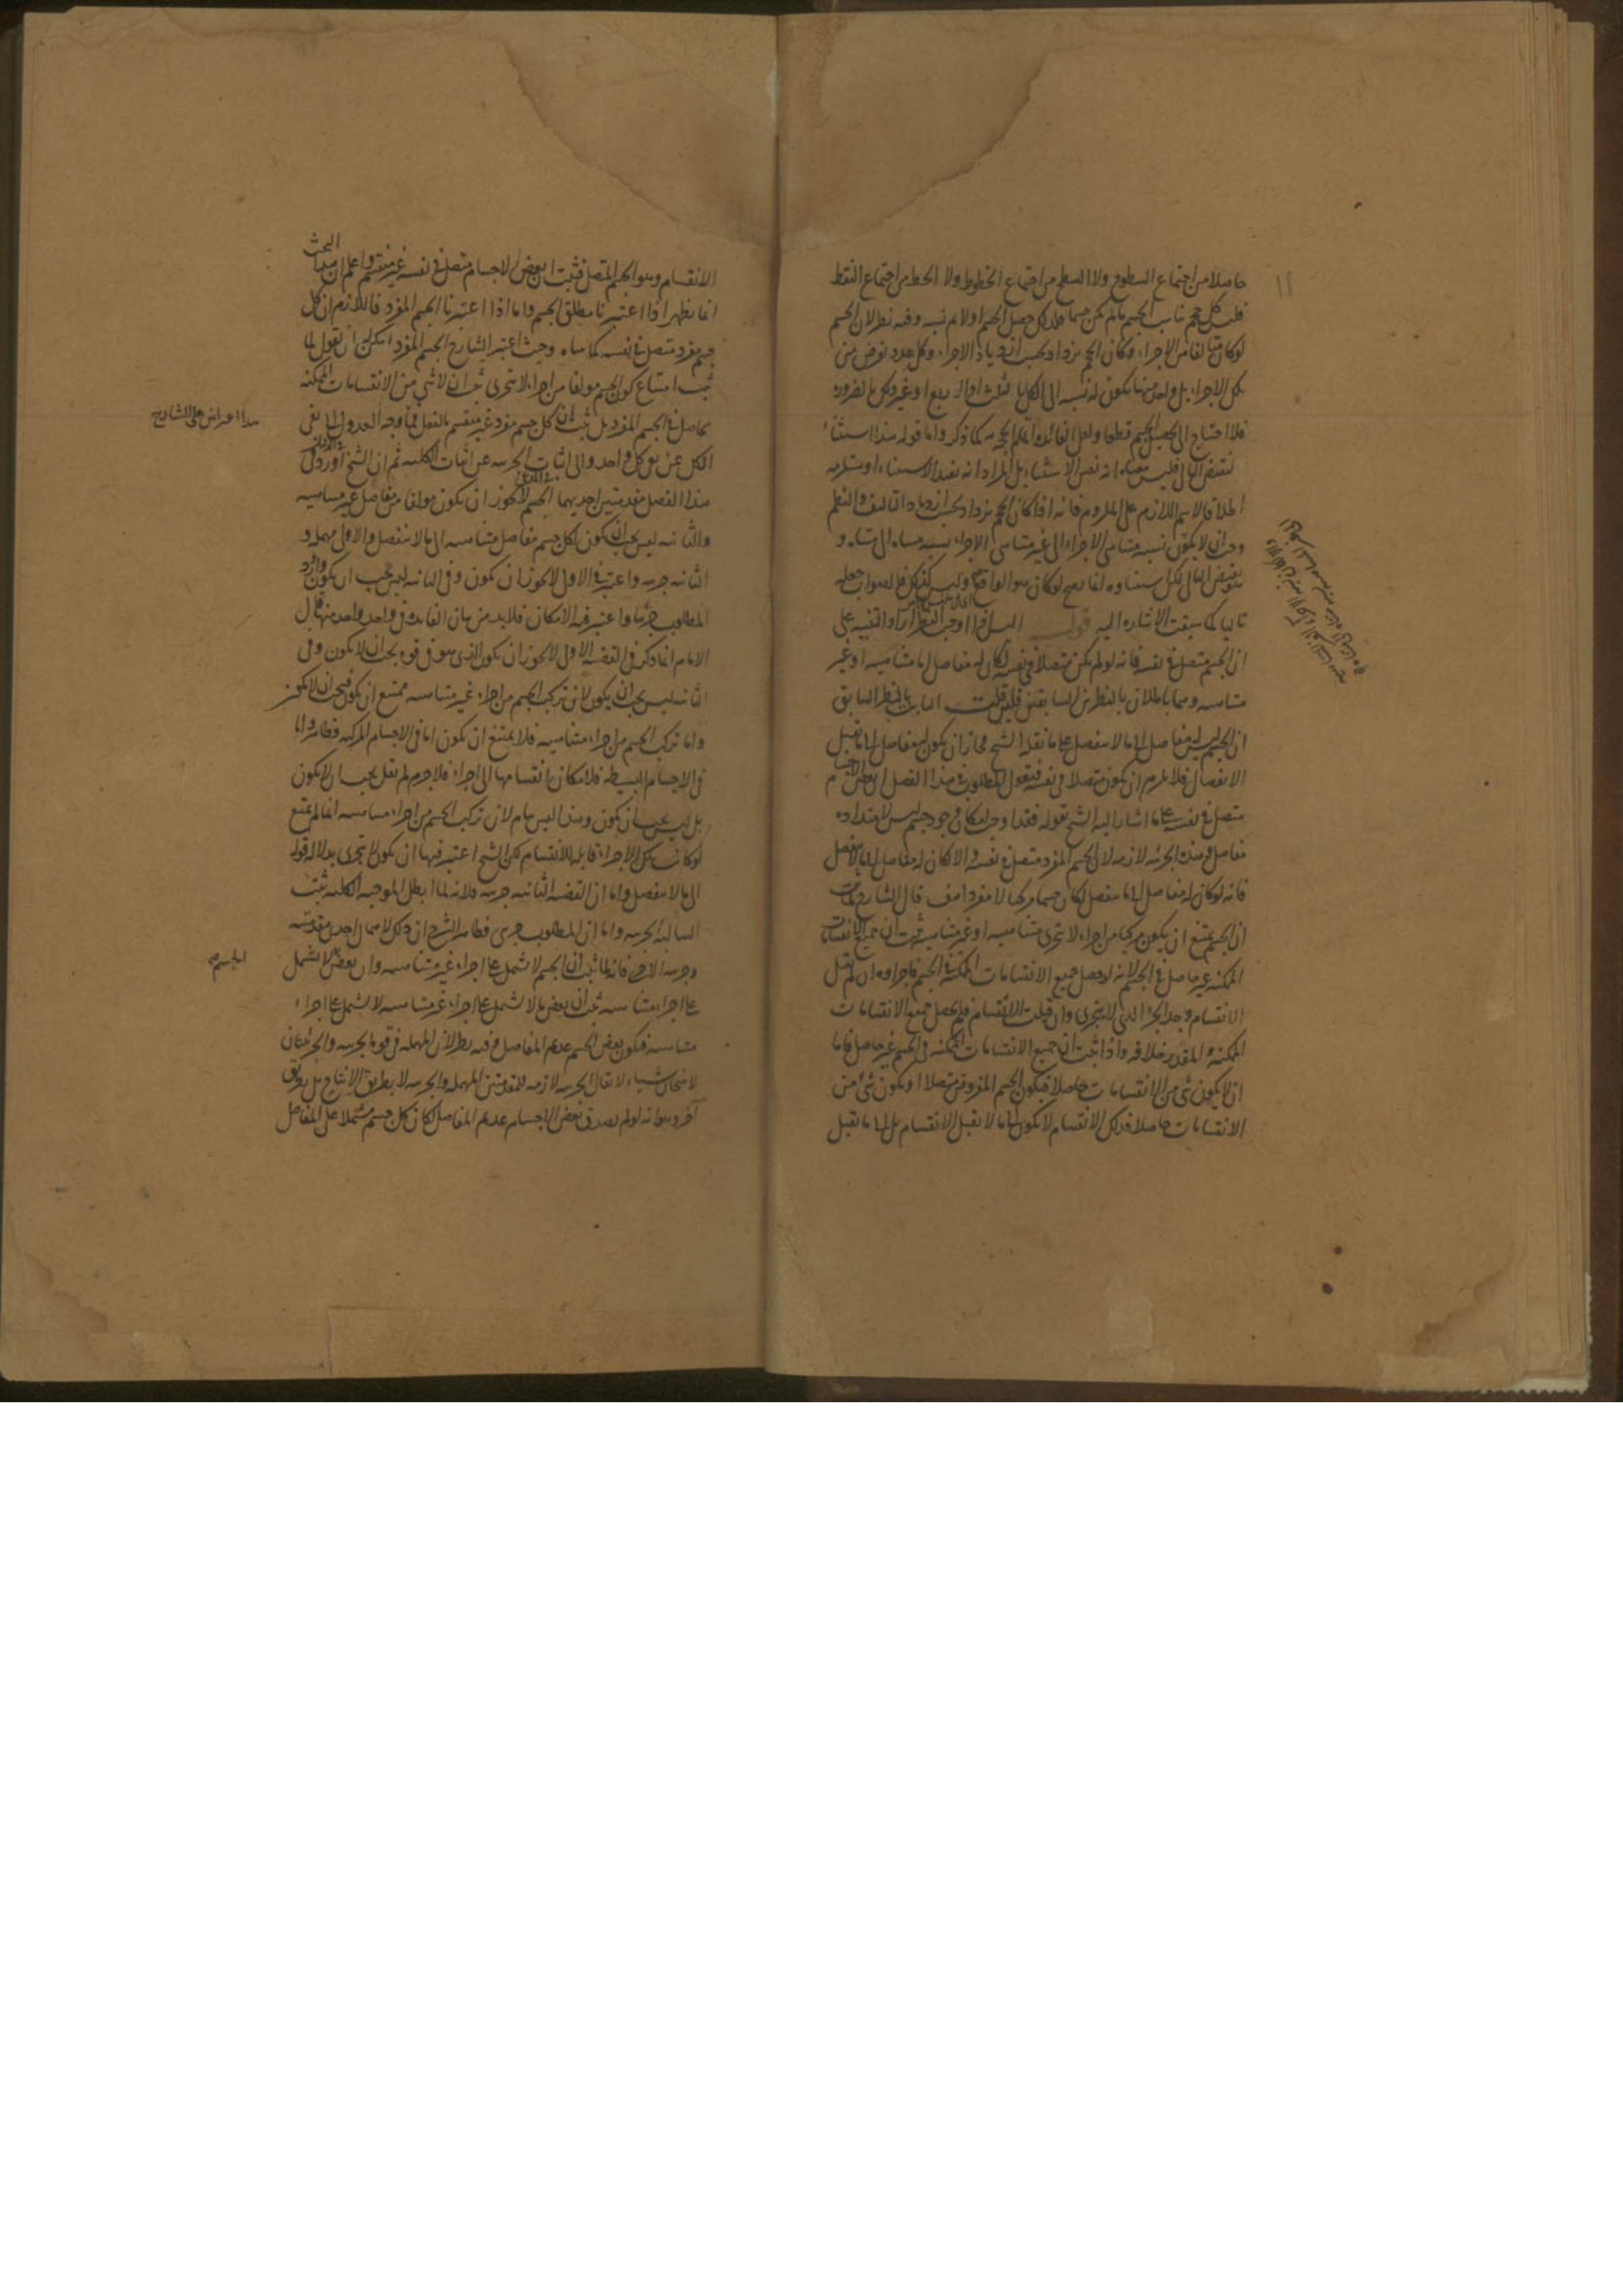 ١١
حاصلا من اجتماع السطوح ولا السطح من اجتماع الخطوط ولا الخط من اجتماع النقط
كل حجم الجسم مالم يكن جسما فلذلك جعل الجسم اولا ثم نسبه وفيه نظر لان الجسم
لو كان متالفا من الاجزاء وكان الحجم يزداد بحسب ازدياد الاجزاء وكل عدد نفرض من
تلك الاجزاء بل واحد منها يكون له نسبه الى الكل بالثلث او الربع او غير ذلك بالضروره
فلا احتياج الى الجسم قطعا ولعل الفائده كما ذكر واما قوله هذا استثناء
لنقيض التالى فليس معناه انه نفس الاستثناء بل المراد انه يفيد الاستثناء او يستلزمه
اطلاقا لاسم اللازم على الملزوم فانه اذا كان الحجم يزداد بحسب ازدياد التاليف والنظم
وجب ان لا يكون نسبه متناهى الاجزاء الى غير متناهى الاجزاء نسبه متناه الى متناه و
نقيض التالى لكن استثناءه انما يصح لو كان هو الواقع وليس كذلك فالصواب جعله
تاليا كما سبقت الاشاره اليه قوله اوجب النظر اراد التنبيه على
ان الجسم متصل فى نفسه فانه لو لم يكن متصلا فى نفسه لكان له مفاصل اما متناهيه او غير
متناهيه وهما باطلان بالنظرين السابقين فان قلت الثابت بالنظر السابق
ان الجسم ليس له مفاصل الى ما لا ينفصل على ما نقله الشيخ فجاز ان يكون له مفاصل الى ما يقبل
الانفصال فلا يلزم ان يكون متصلا فى نفسه فنقول المطلوب فى هذا الفصل ان بعض الاجسام
متصل فى نفسه على ما اشار اليه الشيخ بقوله فقد اوجب امكان وجود جسم ليس لامتداده
مفاصل وهذه الجزئيه لازمه لان الجسم المفرد متصل فى نفسه والا لكان له مفاصل الى ما لا ينفصل
فانه لو كان له مفاصل الى ما ينفصل لكان جسما مركبا لا مفردا هف قال الشارح لما ثبت
ان الجسم يمتنع ان يكون مركبا من اجزاء لا تتجزى متناهيه او غير متناهيه ثبت ان جميع الانقسامات
الممكنه غير حاصل فى الجسم لانه لو حصل جميع الانقسامات الممكنه فى الجسم فاجزاوه ان لم تقبل
الانقسام وجد الجزء الذى لا يتجزى وان قبلت الانقسام فلم يحصل جميع الانقسامات
الممكنه والمقدر خلافه واذا ثبت ان جميع الانقسامات الممكنه فى الجسم غير حاصل فاما
ان لا يكون شئ من الانقسامات حاصلا فيكون الجسم المفروض متصلا او يكون شئ من
الانقسامات حاصلا فذلك الانقسام لا يكون الى ما لا يقبل الانقسام بل الى ما يقبل
الانقسام وهو الجسم المتصل فثبت ان بعض الاجسام متصل فى نفسه غير منقسم واعلم ان هذا البحث
انما يظهر اذا اعتبرنا مطلق الجسم واما اذا اعتبرنا الجسم المفرد فاللازم ان كل
جسم مفرد متصل فى نفسه كما بيناه وحيث اعتبر الشارح الجسم المفرد امكن ان نقول لما
ثبت امتناع كون الجسم مولفا من اجزاء لا تتجزى ثبت ان لا شئ من الانقسامات الممكنه
بحاصل فى الجسم المفرد بل ثبت ان كل جسم مفرد غير منقسم بالفعل فما وجه العدول الى نفى
الكل عن نفى كل واحد والى اثبات الجزئيه عن اثبات الكليه ثم ان الشيخ اورد فى
هذا الفصل مقدمتين احديهما الجسم لا يجوز ان يكون مولفا من مفاصل غير متناهيه
والثانيه ليس يجب ان يكون لكل جسم مفاصل متناهيه الى ما لا ينفصل والاولى مهمله و
الثانيه جزئيه واعتبر فى الاولى لا يجوز ان يكون وفى الثانيه ليس يجب ان يكون
المطلوب جزئيا واعتبر فيه الامكان فلا بد من بيان الفائده فى واحد واحد منها قال
الامام انما ذكر فى القضيه الاولى لا يجوز ان يكون الذى هو فى قوه يجب ان لا يكون وفى
الثانيه ليس يجب ان يكون لان تركب الجسم من اجزاء غير متناهيه ممتنع ان يكون فيجب ان لا يكون
واما تركب الجسم من اجزاء متناهيه فلا يمتنع ان يكون اما فى الاجسام المركبه فظاهر واما
فى الاجسام البسيطه فلامكان انقسامها الى اجزاء فلا جرم لم يقل يجب ان لا يكون
بل ليس يجب ان يكون وهذا ليس بتام لان تركب الجسم من اجزاء متناهيه انما لم يمتنع
لو كانت تلك الاجزاء قابله للانقسام لكن الشيخ اعتبر فيها ان يكون لا يتجزى بدلاله قوله
الى ما لا ينفصل واما ان القضيه الثانيه جزئيه فلانه لما ابطل الموجبه الكليه ثبت
السالبه الجزئيه واما ان المطلوب جزئى فظاهر الشرح ان ذلك لاهمال احدى مقدمتيه
وجزئيه الاخرى فانه لما ثبت ان الجسم لا يشتمل على اجزاء غير متناهيه وان بعض لا يشتمل
على اجزاء متناهيه ثبت ان بعض ما لا يشتمل على اجزاء غير متناهيه لا يشتمل على اجزاء
متناهيه فيكون بعض الجسم عديم المفاصل وفيه نظر لان المهمله فى قوه الجزئيه والجزئيتان
لا تنتجان شيئا لا يقال الجزئيه لازمه للمقدمتين المهمله والجزئيه لا بطريق الانتاج بل بطريق
آخر وهو انه لو لم يصدق بعض الاجسام عديم المفاصل لكان كل جسم مشتملا على المفاصل
هذا اعتراض على الشارح
الجسم صح